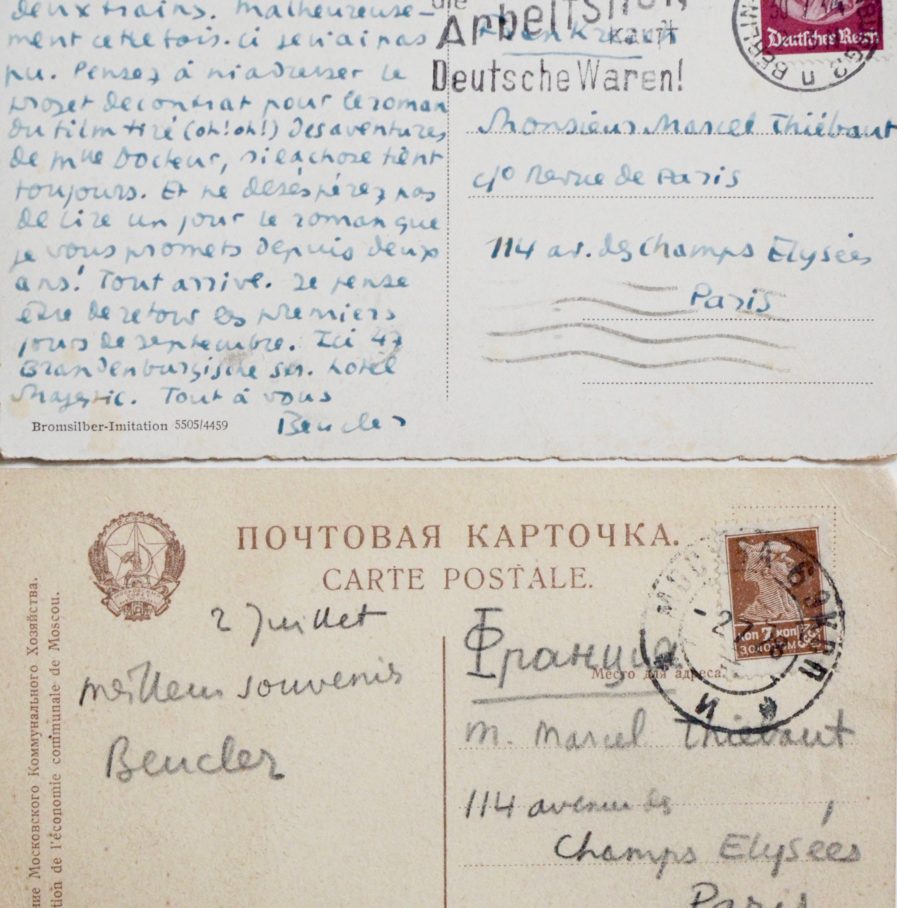 deux trains. Malheureuse-
ment cette fois-ci je n'ai pas
pu. Pensez à m'adresser le
projet de contrat pour le roman
du film tiré (oh! oh!) des aventures
de Mlle Docteur, si la chose tient
toujours. Et ne désespérez pas
de lire un jour le roman que
je vous promets depuis deux
ans! Tout arrive. Je pense
être de retour les premiers
jours de septembre. Ici 47
Brandenburgische str. hotel
Majestic. Tout à vous
Beucler
Bromsilber-Imitation 5505/4459
die
Arbeitsnot,
kauft
Deutsche Waren!
Frankreich
Deutsches Reich
BERLIN
Monsieur Marcel Thiébaut
c/o Revue de Paris
114 av. des Champs Elysées
Paris
ПОЧТОВАЯ КАРТОЧКА.
CARTE POSTALE.
2 Juillet
meilleurs souvenirs
Beucler
ние Московского Коммунального Хозяйства.
tion de l'économie communale de Moscou.
коп 7 коп
ЗОЛОТОМ
Франция
Место для адреса.
M. Marcel Thiébaut
114 avenue des
Champs Elysées
Paris